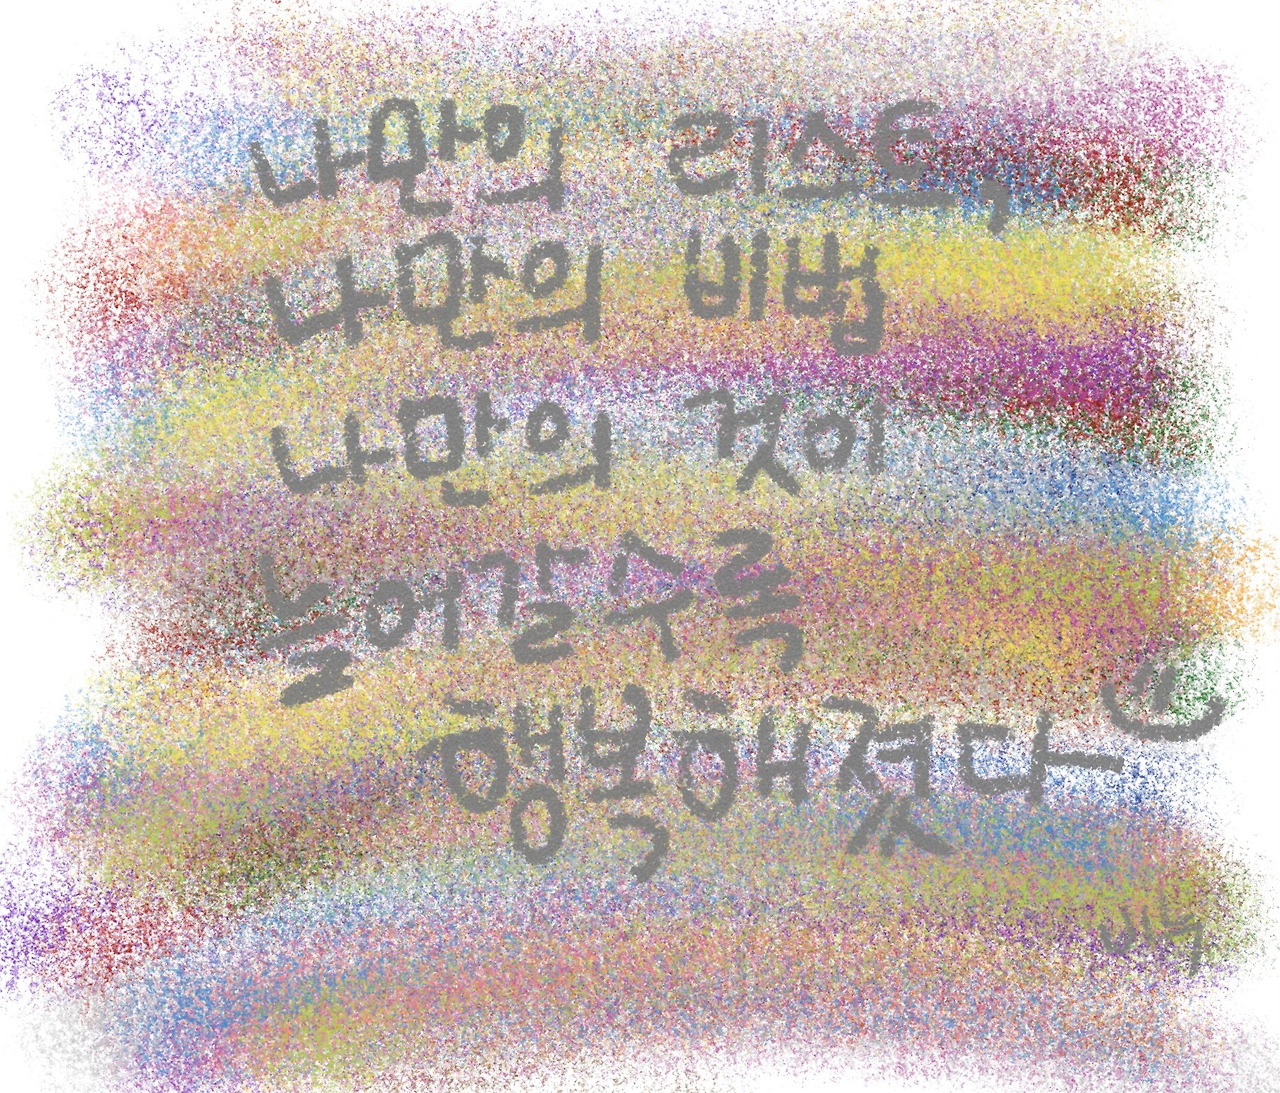 나만의 리스트,
나만의 비법
나만의 것이
늘어갈수록
행복해졌다